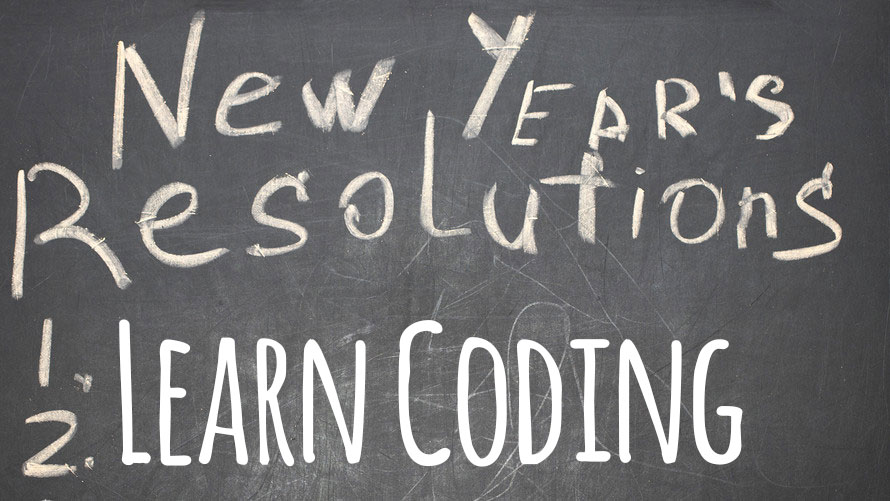 New Year's
Resolutions
1.
2.
Learn Coding